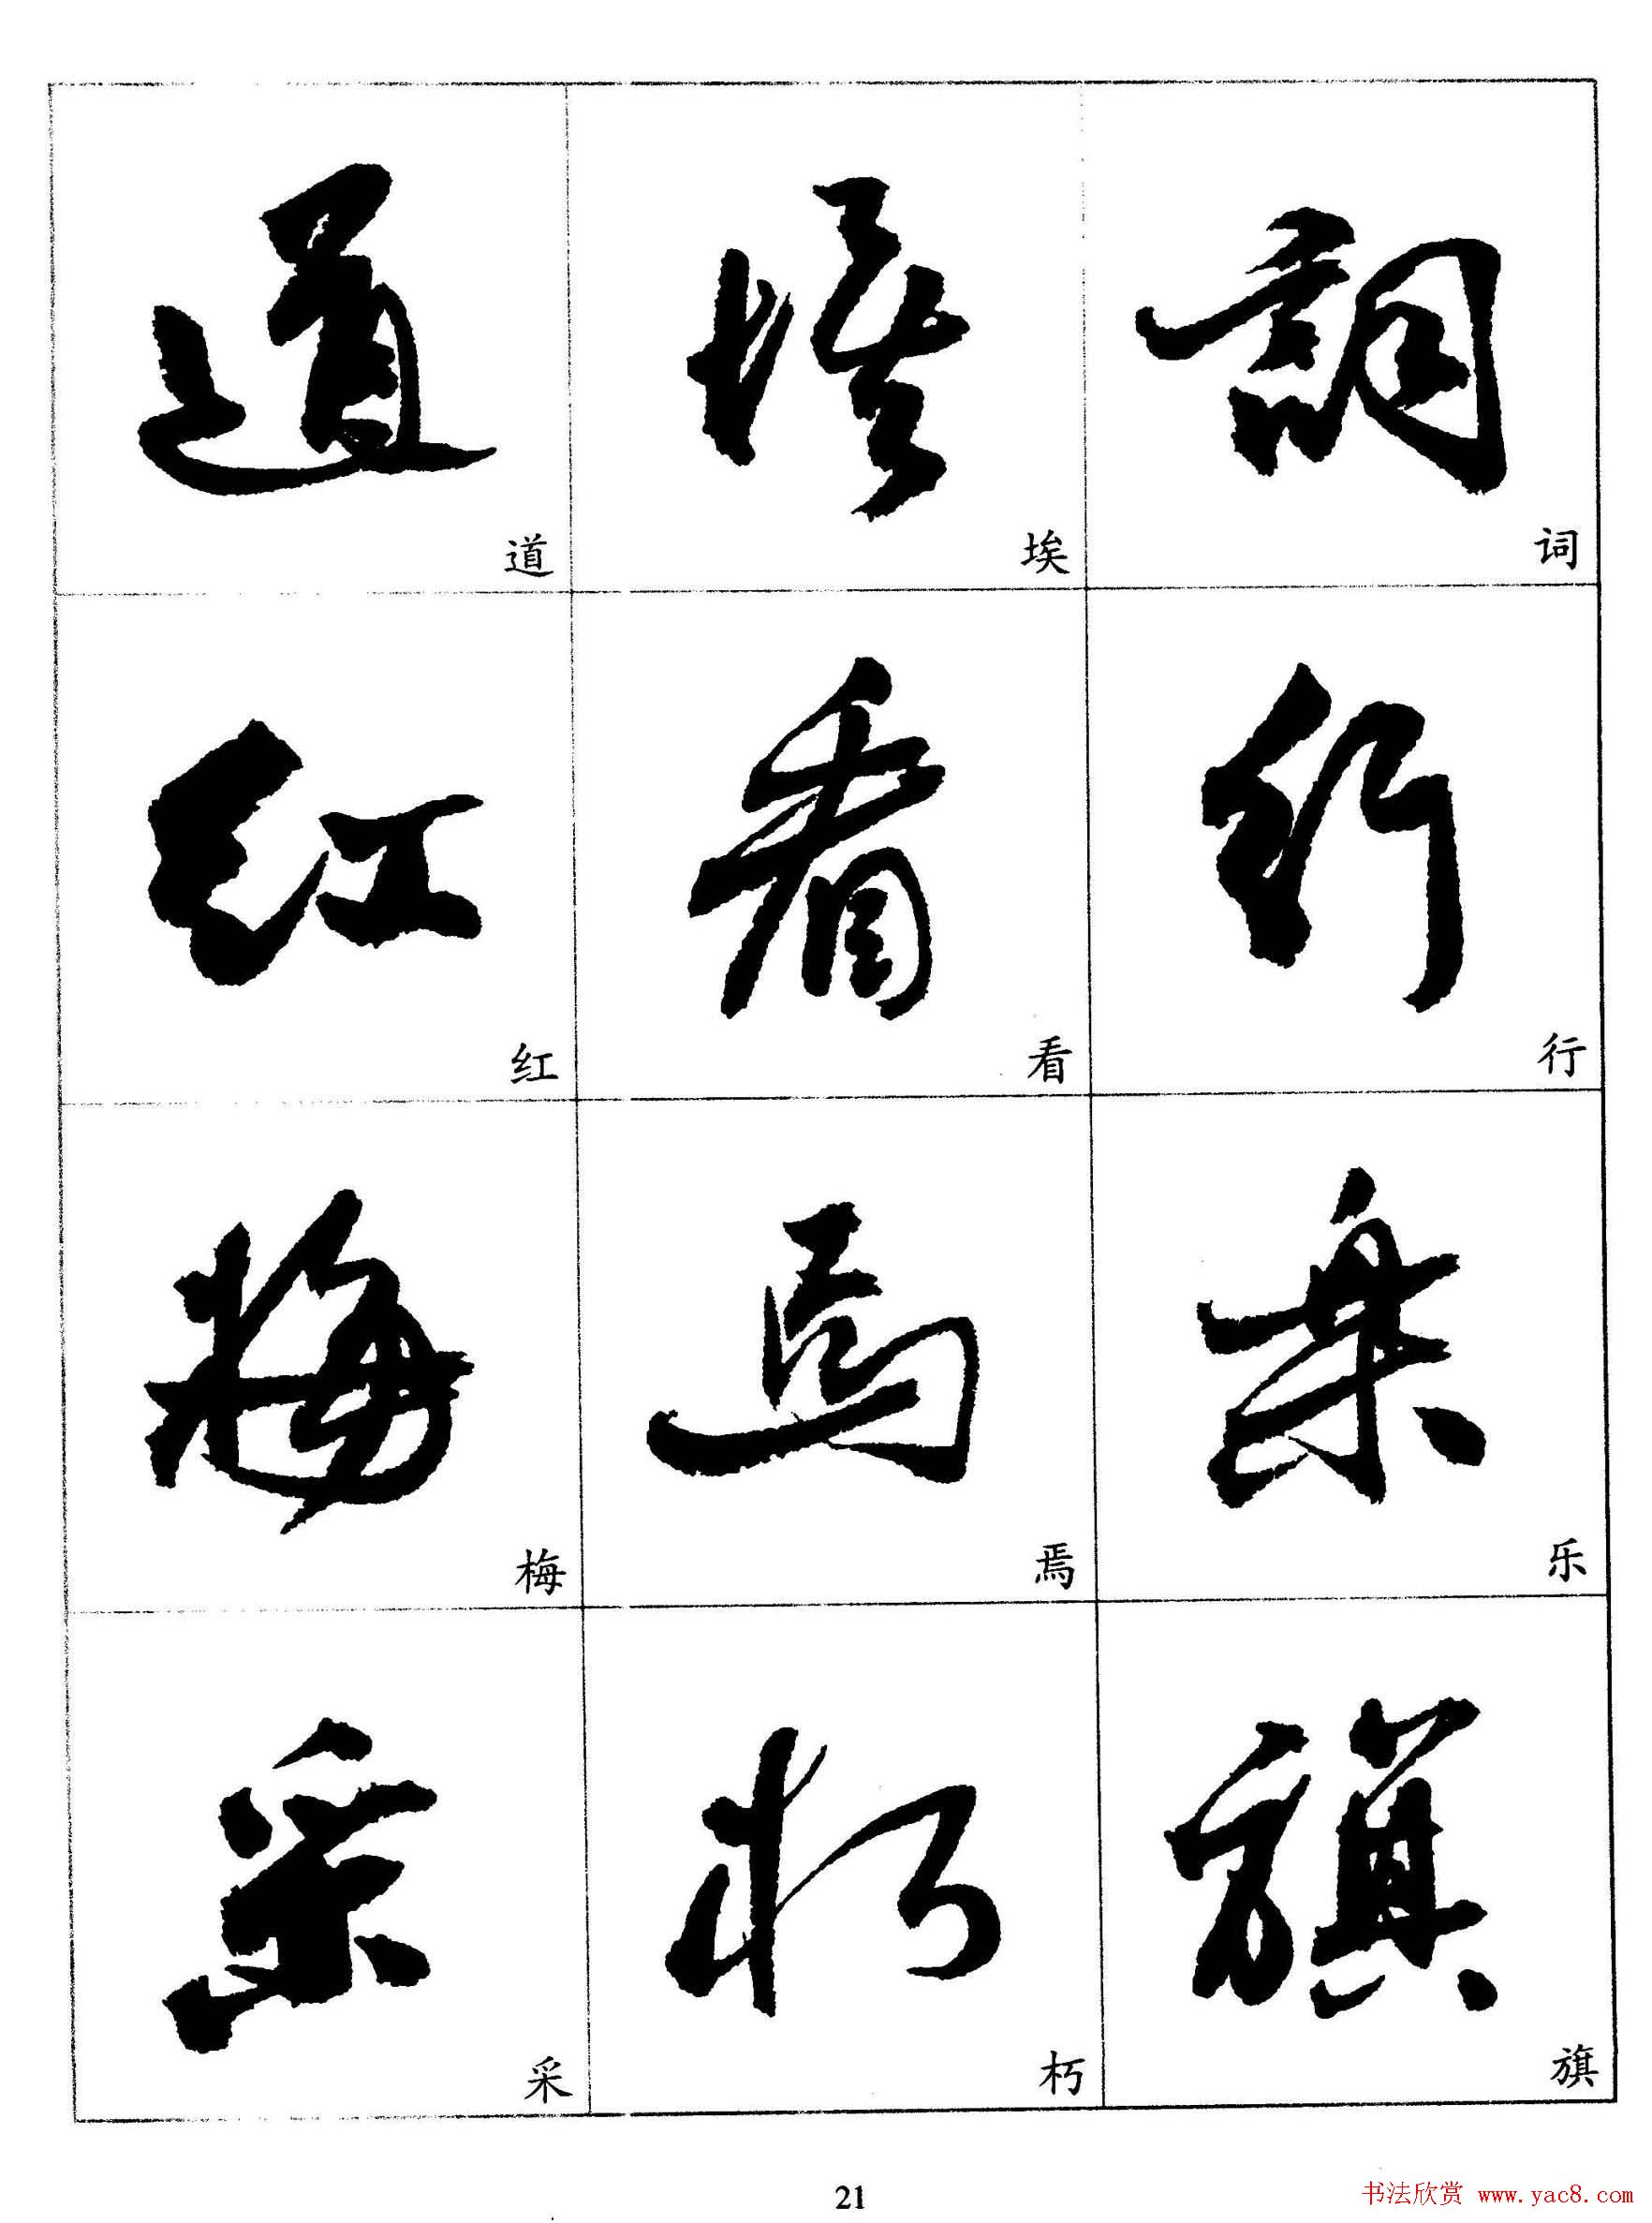 道 埃 词
红 看 行
梅 焉 乐
采 朽 旗
21
书法欣赏 www.yac8.com